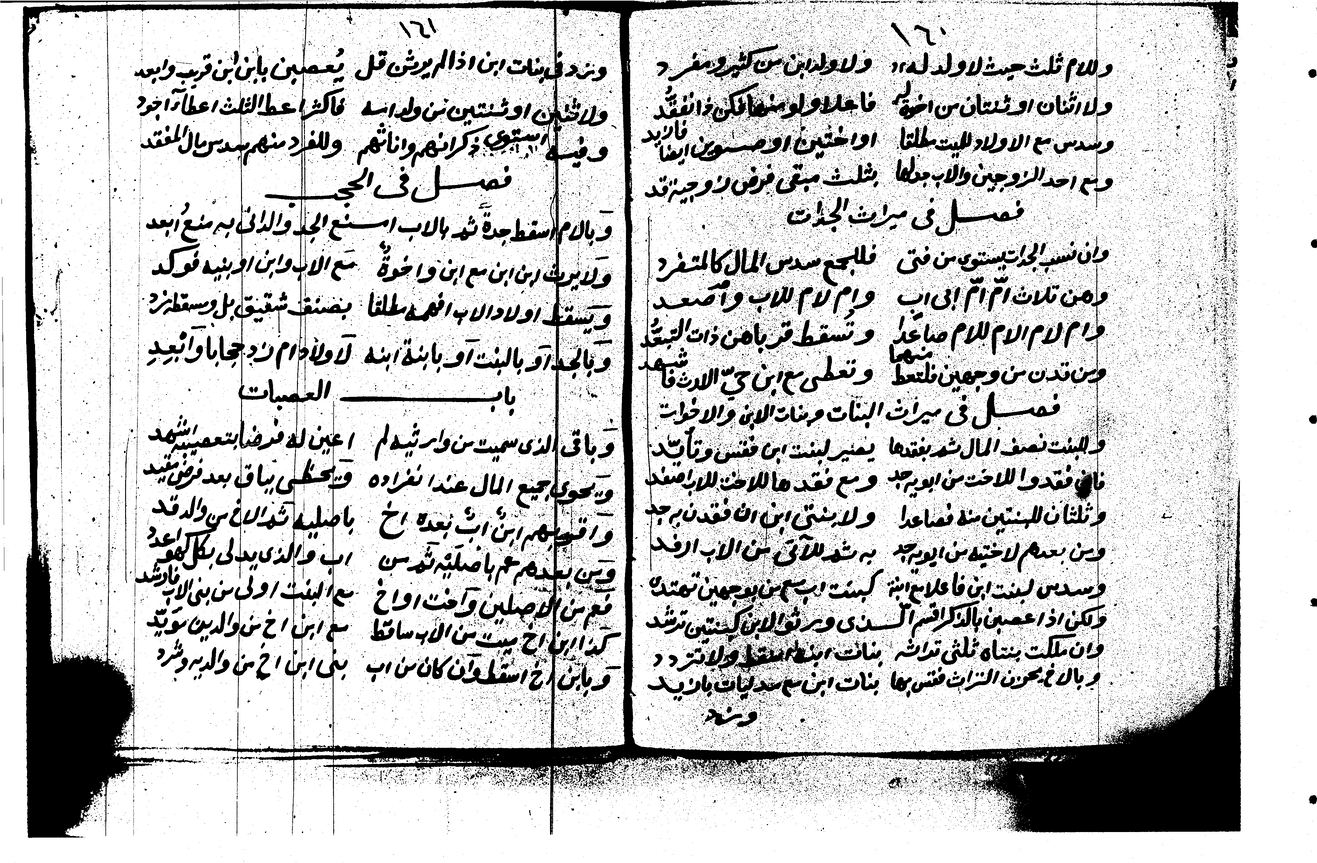 ١٦٠
وللام ثلث حيث لا ولد له ولا ولد ابن من كثير ومفرد
ولا اثنان او ثنتان من اخوة له فاعلا ولو منهما فكن ذا تفقد
وسدس مع الاولاد للميت مطلقا او اختين او صنوين ايضا فازيد
ومع احد الزوجين والاب جد لها بثلث مبقى فرض زوجية قد
فصل فى ميراث الجدات
وان نسب الجدات يستوى من فتى فللجمع سدس المال كالمتفرد
وهن ثلاث امّ امّ ابى اب وام لام للاب واصعد
وام لام الام للام صاعدا وتسقط قرباهن ذات التبعد
ومن تدن من وجهين فلتعط منهما وتعطى مع ابن حىّ الارث فاشهد
فصل فى ميراث البنات وبنات الابن والاخوات
وللبنت نصف المال ثم بفقدها يصير لبنت ابن فقس وتأيد
فان فقدوا للاخت من ابويه جد ومع فقدها للاخت للاب اصفد
وثلثان للبنتين منه فصاعدا ولابنتى ابن ان فقدن به جد
ومن بعدهم لاختيه من ابويه جد به ثم للآتى من الاب ارفد
وسدس لبنت ابن فاعلا مع ابنة كبنت اب مع من بوجهين تمتد
ولكن اذا عصبن بالذكر اقسم الذى ورثوا لابن كبنتين ترشد
وان ملكت بنتاه ثلثى تراثه بنات ابنه اسقط ولا تتردد
وبالاخ يحزن التراث فقس بها بنات ابن مع سدليات بازيد
وزد
١٦١
وزد فى بنات ابن اذا لم يرثن قل يُعصبن بابن ابن قريب وابعد
ولاثنين او ثنتين من ولد امه فاكثر اعط الثلث اعطاء اجود
وفيه استوى ذكرانهم واناثهم وللفرد منهم سدس مال المفقد
فصل فى الحجب
وبالام اسقط جدة ثم بالاب امنع الجد والدانى به منع ابعد
ولا يورث ابن ابن مع ابن واخوة مع الاب وابن او بنيه فوكد
ويسقط اولاد الاب افهمه مطلقا بصنف شقيق بل ومسقطه زد
وبالجد او بالبنت او بابنة ابنه لاولاد ام زد حجابا وابعد
باب العصبات
وباقى الذى سميت من وارثيه لم اعين له فرضا بتعصيب اشهد
ويحوى جميع المال عند انفراده ويحظى بباق بعد فرض مقيد
واقربهم ابن اب بعده اخ باصليه ثم الاخ من والد قد
ومن بعدهم عم باصليه ثم من اب والذى يدلى بكل كهو اعدد
فعم من الاصلين واخت او اخ مع البنت اولى من بنى الاب فارشد
كذا ابن اخ ميت من الاب ساقط مع ابن اخ من والدين مؤيد
وبابن اخ اسقط وان كان من اب بنى ابن اخ من والديه وشرد